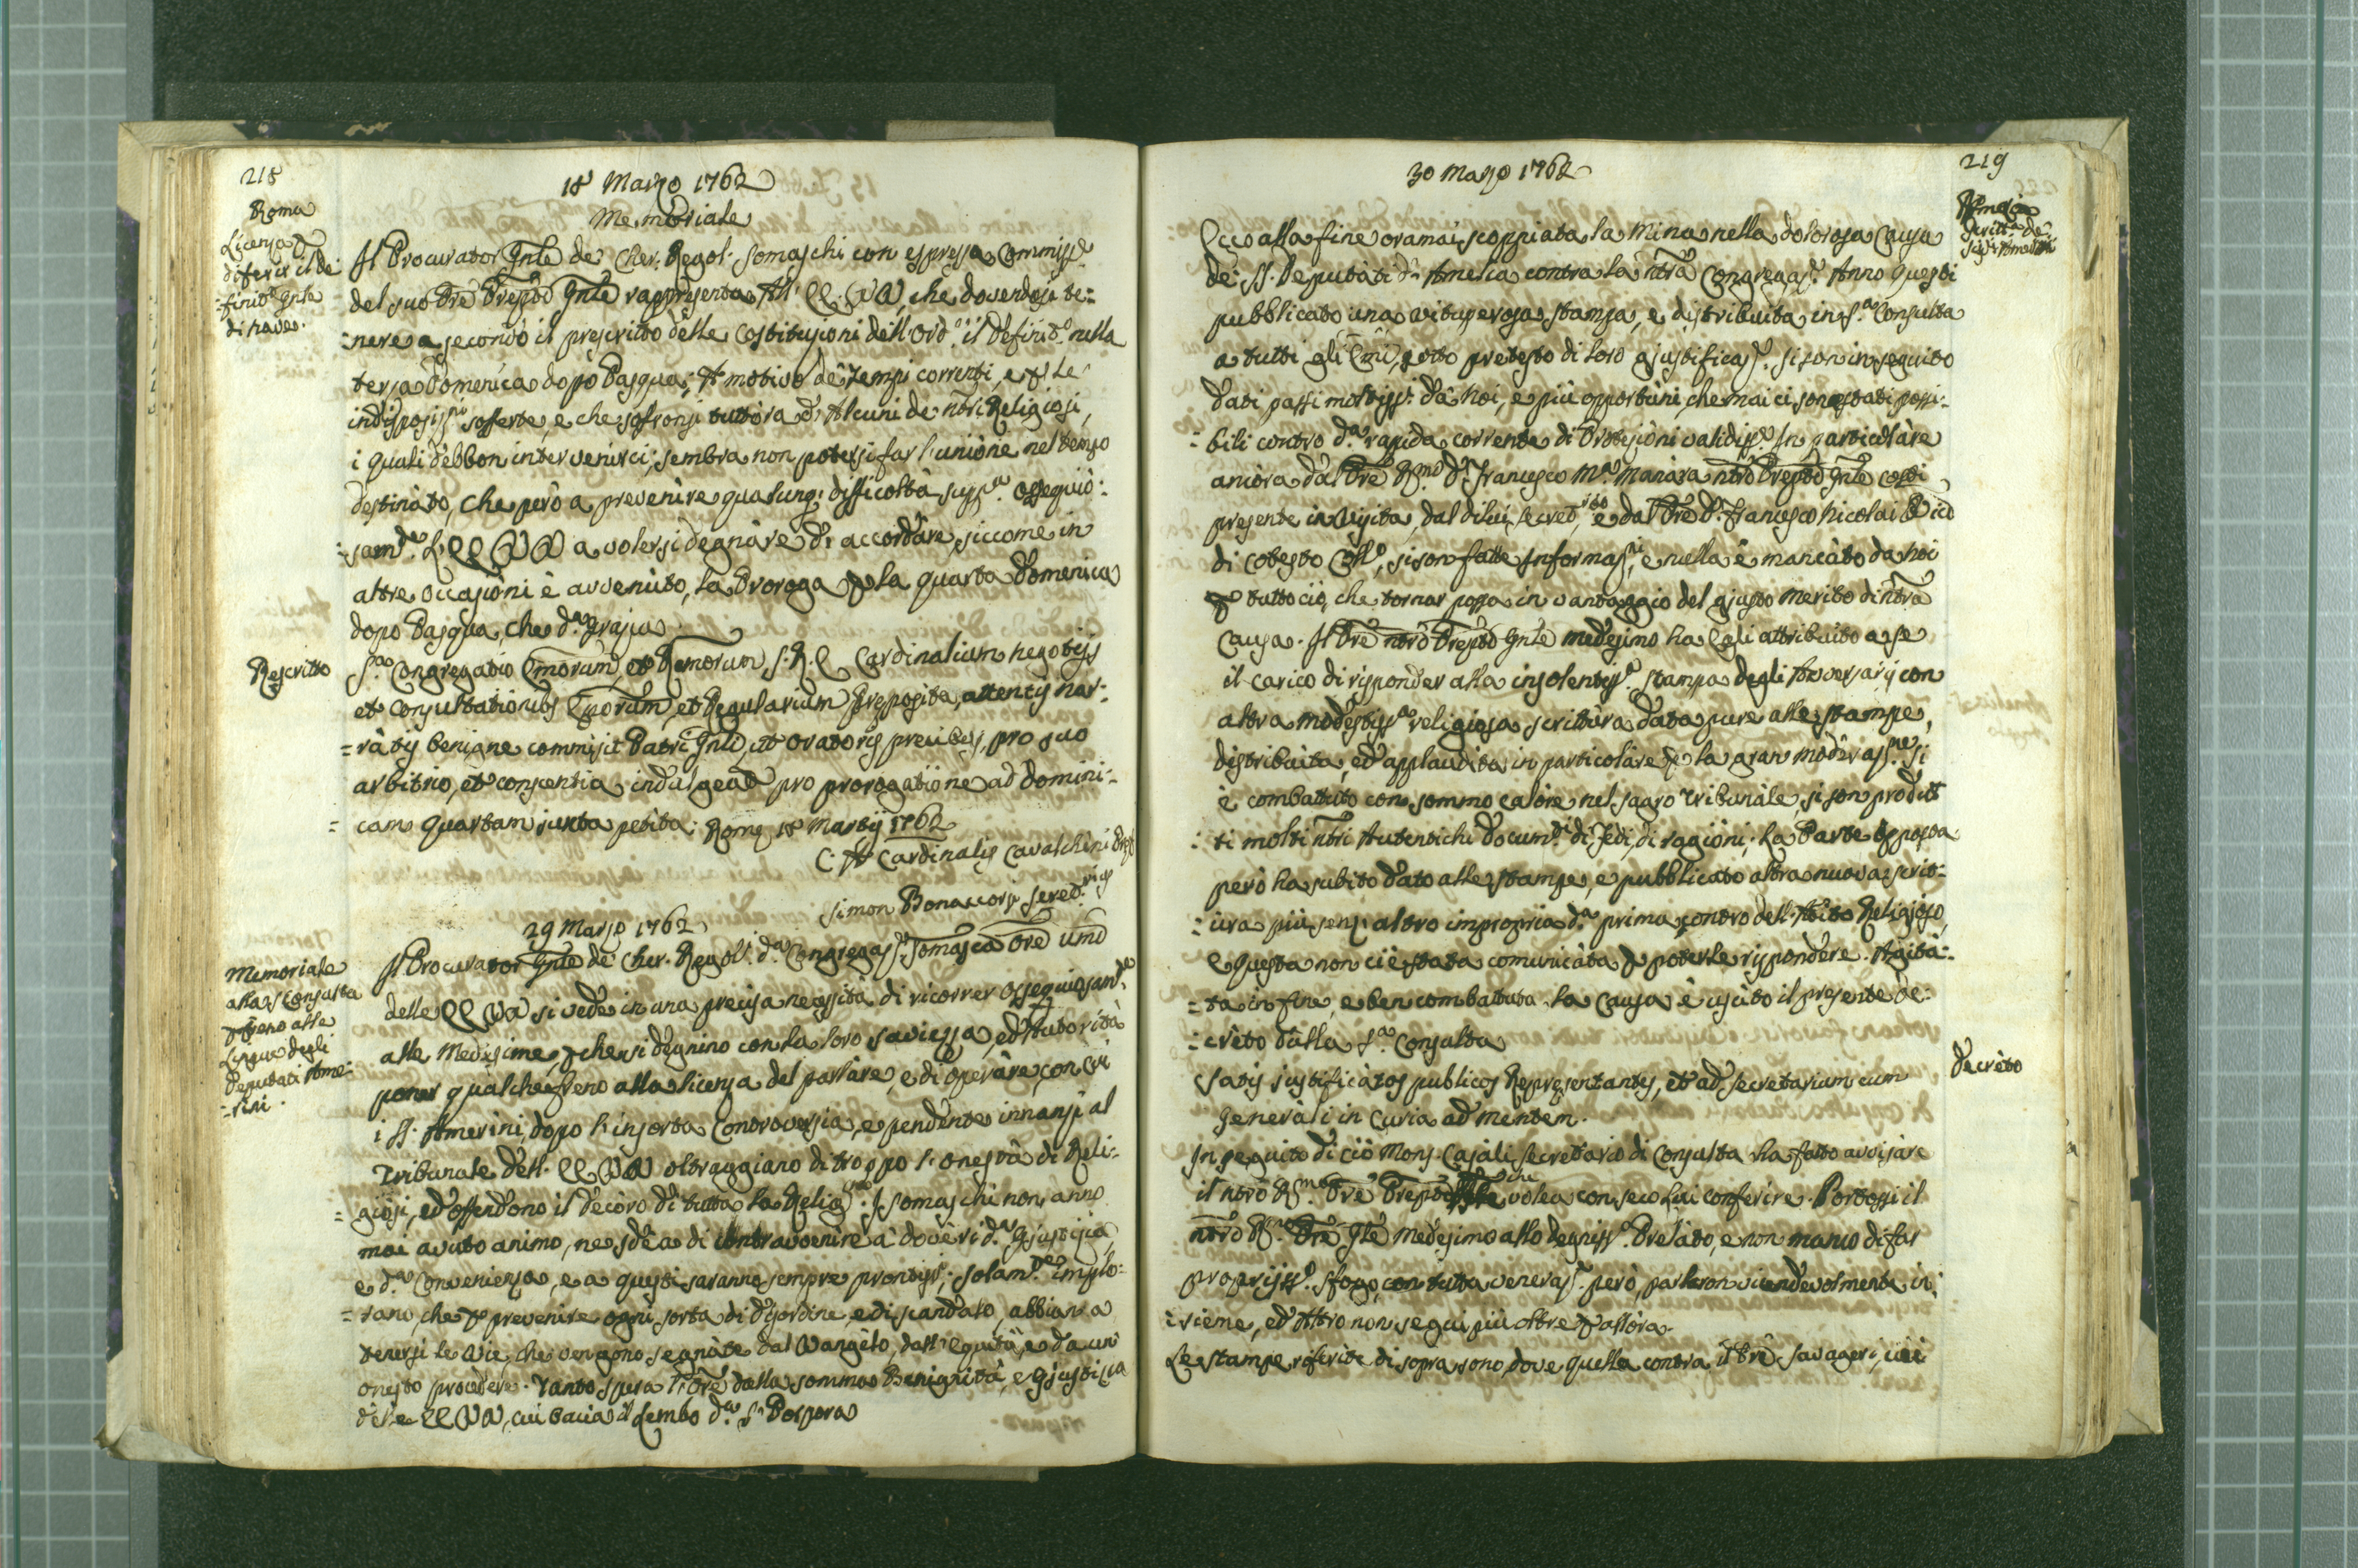 218
18 Marzo 1762
Memoriale
Roma
Licenza p
diferir il de:
=finit.o Gnle
di nave.
Il Procurator Gnle de Cher. Regol. Somaschi con espressa Commiss.e
del suo Pre Prepto Gnle rappresenta All' EE.VV, che dovendosi te:
:nere a secondo il prescritto delle Costituzioni dell'Ord.e il Definit.o nella
terza Domenica dopo Pasqua; A motivo de tempi correnti, e p le
indisposiz.ni sofferte, e che soffronsi tuttora d'Alcuni de nri Religiosi,
i quali debbon intervenirci; sembra non potersi far l'unione nel tempo
destinato, Che però a prevenire qualunq; difficoltà supp.ca ossequio:
:sam.te L'EE VV a volersi degnare di accordare, siccome in
altre occasioni è avvenuto, la Proroga p la quarta Domenica
dopo Pasqua, che d.a Grazia
Rescritto
S.a Congregatio Emorum, et Rmorum, S.R.E Cardinalium negotijs
et Consultationibs Eporum, et Regularium preposita, attentis nar:
=ratis benigne commisit Patri Gnli, ut oratoris precibus, pro suo
arbitrio, et conscentia indulgeat pro prorogatione ad Domini:
= cam quartam juxta petita; Rome 18 Martij 1762
C: A Cardinalis Cavalchini Pref.
Simon Bonaccorsi Secret.rius
29 Marzo 1762
Memoriale
alla S Consulta
p freno alle
Lingue degli
Deputati Ame:
=rini.
Il Procurator Gnle de Cher. Regol. d.a Congregaz. Somasca Ore umo
delle EE VV si vede in una precisa necessita di ricorrer ossequiosam.te
alle Medesime, p che si degnino con la loro saviezza, ed Autorità
poner qualche freno alla licenza del parlare, e di operare, con cui
i SS. Amerini, dopo l'insorta Controversia, e pendente innanzi al
Tribunale dell' EE VV oltraggiano di troppo l'onestà di Reli:
= giosi, ed offendono il decoro di tutta la Relig.ne: I Somaschi non anno
mai avuto animo, ne Idea di Contravvenire a' doveri d.a Gjustizia,
e d.a Convenienza, e a questi saranno sempre prontiss.; solam.te implo:
= rano, che p prevenire ogni sorta di disordine, e di scandalo, abbian a
tenersi le vie, che vengono segnate dal Vangelo, dall'Equità, e da un'
onesto procedere. Tanto spera l'Ore dalla somma Benignità, e Gjustizia
delle EE VV, cui bacia il Lembo d.a S. Porpora
219
30 Marzo 1762
Amelia
Scritt.a de
Sig.ri Amerini
Ecco alla fine oramai scoppiata la Mina nella dolorosa Causa
de SS. Deputati d'Amelia contra la nra Congregaz.e Anno questi
pubblicato una vituperosa stampa, e distribuita in S.a Consulta
a tutti gli Emi, sotto pretesto di loro gjustificaz.e Si son in seguito
dati passi moltiss. da noi, e più opportuni, che mai ci sono stati possi:
= bili contro d.a rapida corrente di Protezioni validiss.e In particolare
ancora dal Pre R.mo D. Francesco M.a Manara nro Prepto Gnle costi
presente in Visita, dal di lui Secret.rio e dal Pre D. Francesco Nicolai Vice
di cotesto Coll.o, si son fatte Informaz.ni, e nulla è mancàto da noi
p tutto ciò, che tornar possa in vantaggio del gjusto merito di nra
Causa. Il Pre nro Prepto Gnle medesimo ha Egli attribuito a se
il carico di risponder alla insolentiss.a stampa degli Avversarij con
altra modestiss.a religiosa scrittura data pure alle stampe,
distribuita, ed applaudita in particolare p la gran moderaz.ne Si
è combattuto con sommo calore nel sagro Tribunale, si son prodot
: ti molti nri Autentichi docum.ti di Fedi, di ragioni; La Parte Opposta
però ha subito dato alle stampe, e pubblicato altra nuova scrit:
= ura più senz'altro impropria d.a prima, contro dell'Abito Religioso,
e questa non ci è stata comunicàta p poterle rispondere. Agità:
= ta in fine, e ben combattuta la Causa è uscito il presente De:
= creto dalla S.a Consulta
Decreto
Satis justificatos publicos Representantes, et ad secretarium cum
Generali in Curia ad mentem.
In seguito di ciò Mons. Casali Secretario di Consulta ha fatto avvisare
il nro R.mo Pre Prepto che volea con seco Lui conferire. Portossi il
nro R.mo Pre Gle medesimo allo degniss.o Prelàto, e non manco di far
propriiss.o sfogo, con tutta veneraz.e però, parlaron vicendevolmente in:
: sieme, ed Altro non seguì più oltre p allora.
Le stampe riferite di sopra sono, dove quella contra il Pre Savageri, ivi